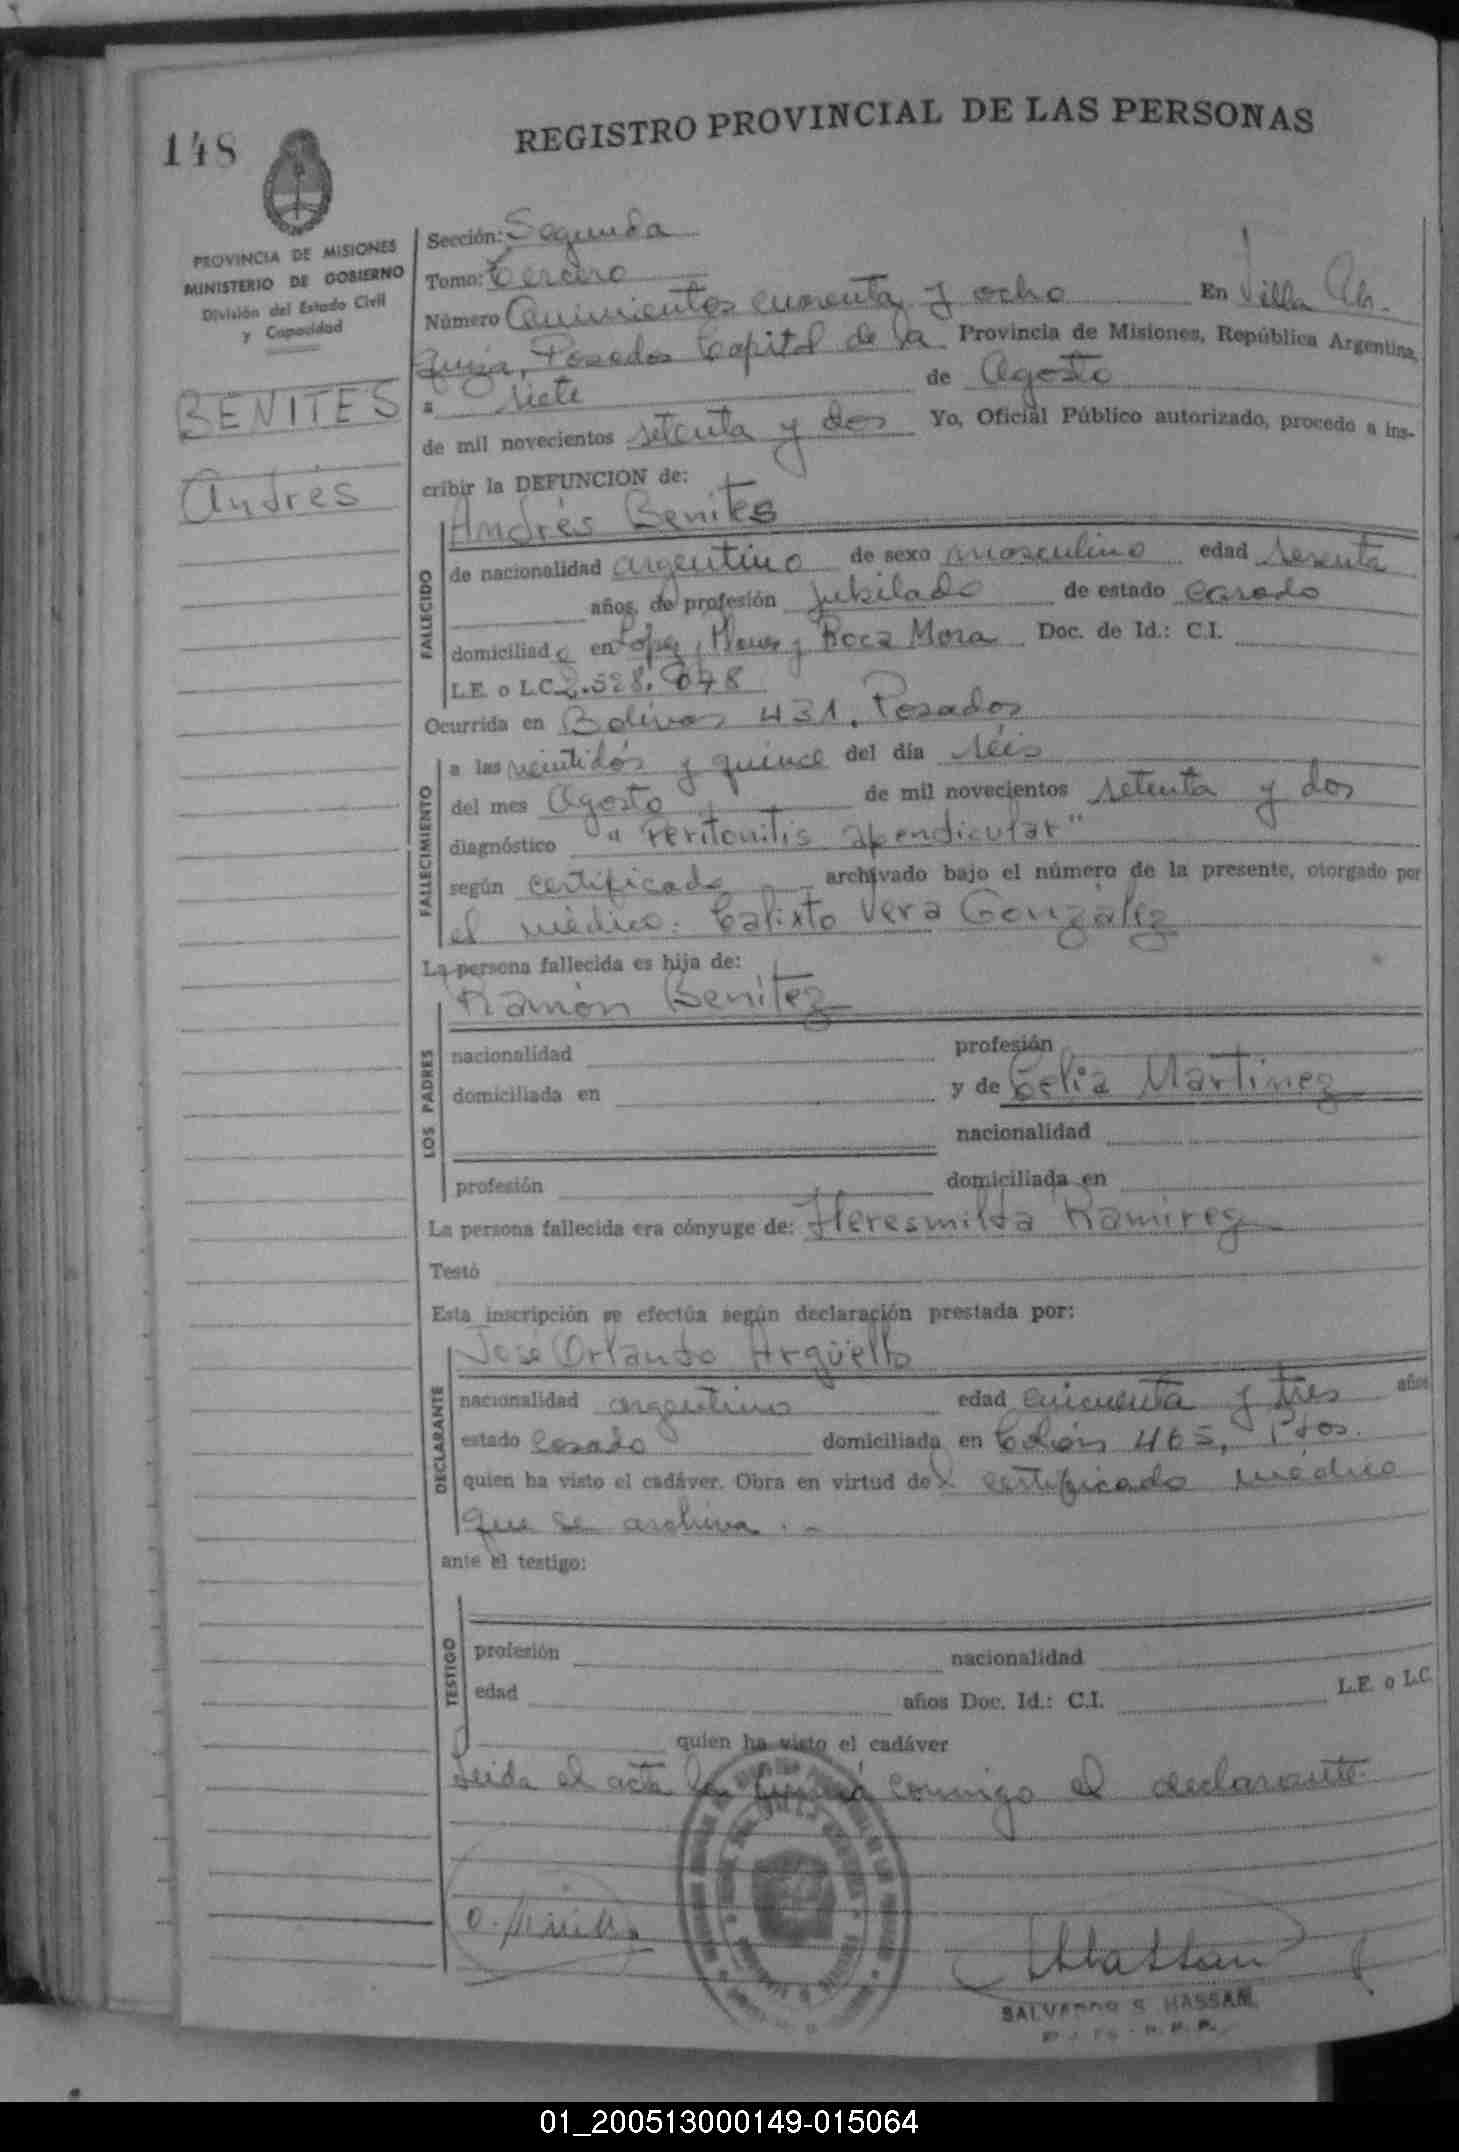 148
REGISTRO PROVINCIAL DE LAS PERSONAS
PROVINCIA DE MISIONES
MINISTERIO DE GOBIERNO
División del Estado Civil
y Capacidad
BENITES
Andrés
Sección: Segunda
Tomo: Tercero
Número Quinientos cuarenta y ocho En Villa
Posadas Capital de la Provincia de Misiones, República Argentina,
a siete de Agosto
de mil novecientos setenta y dos Yo, Oficial Público autorizado, procedo a ins-
cribir la DEFUNCION de:
Andrés Benites
FALLECIDO
de nacionalidad argentino de sexo masculino edad sesenta
años, de profesión jubilado de estado casado
domiciliado en López, y Roca Mora Doc. de Id.: C.I.
L.E. o L.C. 2.528.048
Ocurrida en Bolívar 431, Posadas
FALLECIMIENTO
a las veintidós y quince del día séis
del mes Agosto de mil novecientos setenta y dos
diagnóstico "Peritonitis apendicular"
según certificado archivado bajo el número de la presente, otorgado por
el médico: Calixto Vera González
La persona fallecida es hija de:
Ramón Benítez
LOS PADRES
nacionalidad profesión
domiciliada en y de Celia Martinez
nacionalidad
profesión domiciliada en
La persona fallecida era cónyuge de: Heresmilda Ramirez
Testó
Esta inscripción se efectúa según declaración prestada por:
José Orlando Argüello
DECLARANTE
nacionalidad argentino edad cincuenta y tres años
estado casado domiciliada en Colón 465, Pdas.
quien ha visto el cadáver. Obra en virtud del certificado médico
que se archiva.-
ante el testigo:
TESTIGO
profesión nacionalidad
edad años Doc. Id.: C.I. L.E. o L.C.
quien ha visto el cadáver
Leida el acta la firma conmigo el declarante.
Hassan
SALVADOR S. HASSAN
01_200513000149-015064